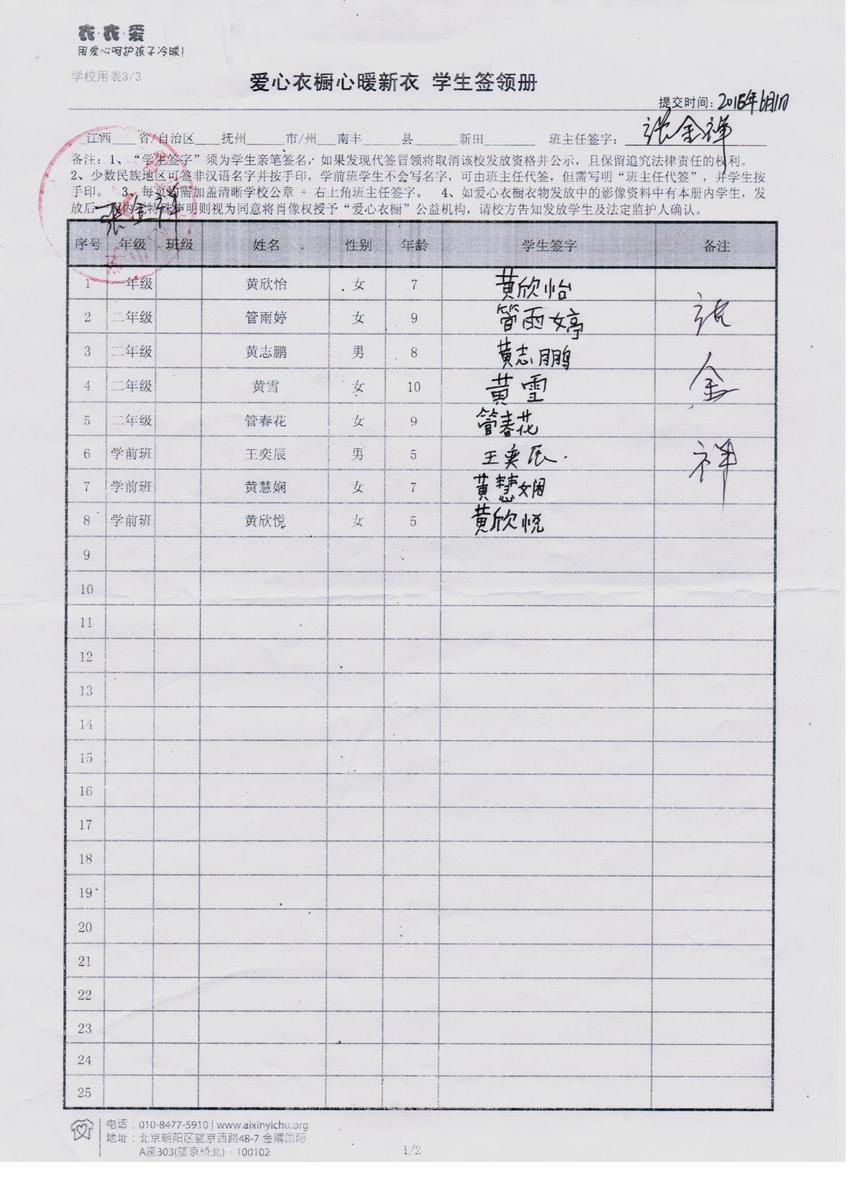 衣·衣·爱
用爱心呵护孩子冷暖!
学校用表3/3
爱心衣橱心暖新衣 学生签领册
提交时间: 2016年6月1日
江西 省/自治区 抚州 市/州 南丰 县 新田 班主任签字: 张金祥
备注: 1、“学生签字”须为学生亲笔签名, 如果发现代签冒领将取消该校发放资格并公示, 且保留追究法律责任的权利。
2、少数民族地区可签非汉语名字并按手印, 学前班学生不会写名字, 可由班主任代签, 但需写明“班主任代签”, 并学生按
手印。 3、每页需加盖清晰学校公章 + 右上角班主任签字。 4、如爱心衣橱衣物发放中的影像资料中有本册内学生, 发
放后 内 特 声明则视为同意将肖像权授予“爱心衣橱”公益机构, 请校方告知发放学生及法定监护人确认。
张金祥
序号 年级 班级 姓名 性别 年龄 学生签字 备注
1 一年级 黄欣怡 女 7 黄欣怡
2 二年级 管雨婷 女 9 管雨婷 张
3 二年级 黄志鹏 男 8 黄志鹏
4 二年级 黄雪 女 10 黄雪 金
5 二年级 管春花 女 9 管春花
6 学前班 王奕辰 男 5 王奕辰. 祥
7 学前班 黄慧娴 女 7 黄慧娴
8 学前班 黄欣悦 女 5 黄欣悦
9
10
11
12
13
14
15
16
17
18
19
20
21
22
23
24
25
电话: 010-8477-5910 | www.aixinyichu.org
地址: 北京朝阳区望京西路48-7 金隅国际
A座303(望京桥北) · 100102
1/2